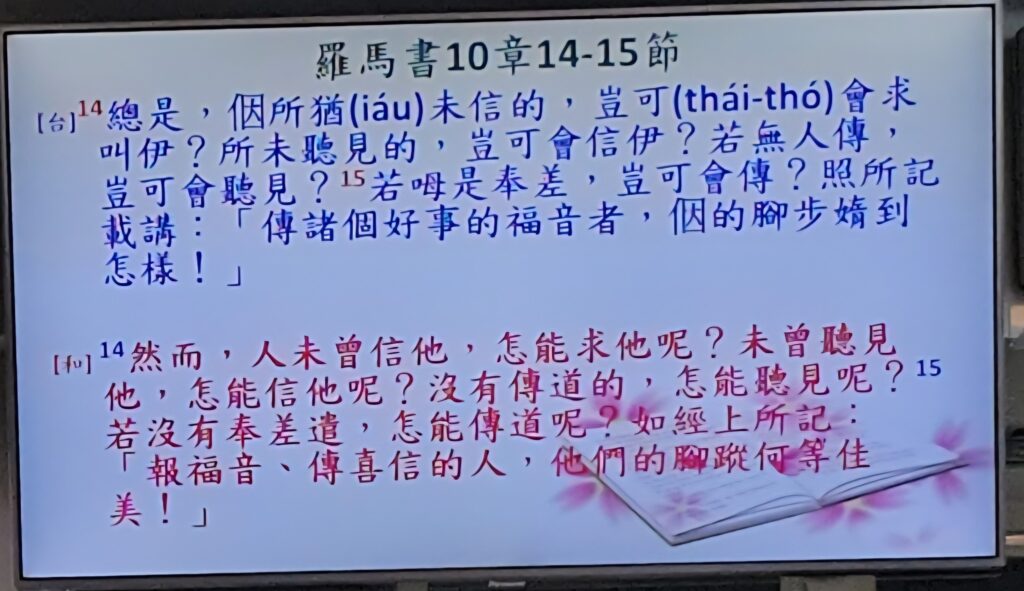 羅馬書10章14-15節
[台]14總是，𪜶所猶(iáu)未信的，豈可(thái-thó)會求
叫伊？所未聽見的，豈可會信伊？若無人傳，
豈可會聽見？15若呣是奉差，豈可會傳？照所記
載講：「傳諸個好事的福音者，𪜶的腳步媠到
怎樣！」
[和]14然而，人未曾信他，怎能求他呢？未曾聽見
他，怎能信他呢？沒有傳道的，怎能聽見呢？15
若沒有奉差遣，怎能傳道呢？如經上所記：
「報福音、傳喜信的人，他們的腳蹤何等佳
美！」